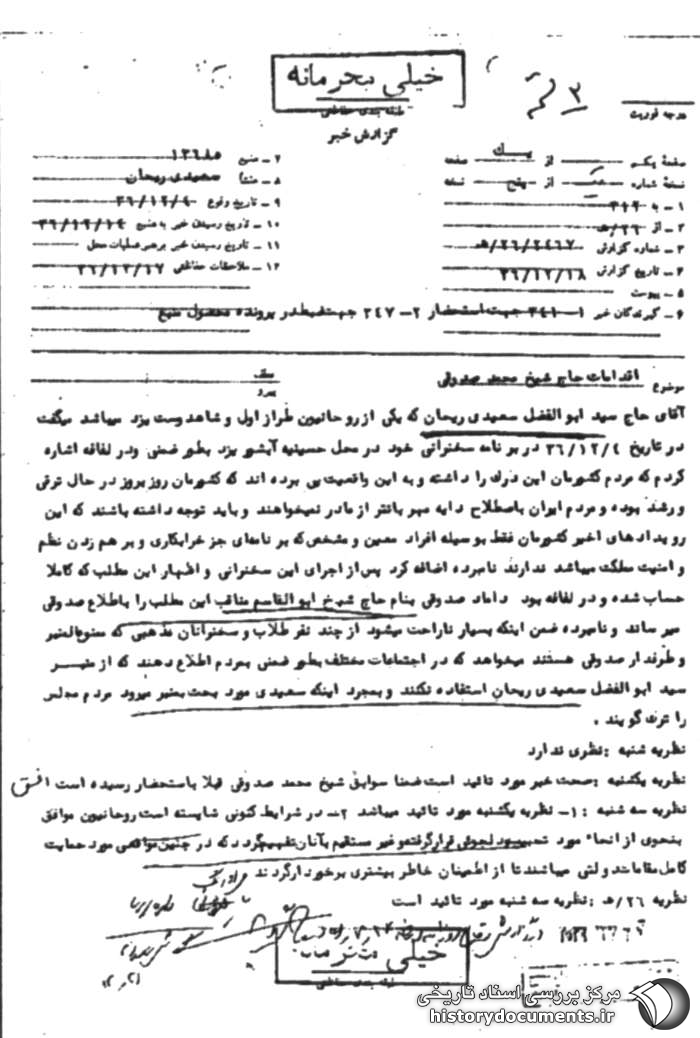 خیلی محرمانه
طبقه بندی حفاظتی
گزارش خبر
درجه فوریت
صفحه یکم از یک صفحه
نسخه شماره از پنج نسخه
۱ - به ۳۱۲
۲ - از ۲۶/هـ
۳ - شماره گزارش ۲۶/۲۴۶۷/هـ
۴ - تاریخ گزارش ۳۶/۱۲/۱۸
۵ - پیوست
۶ - گیرندگان خبر ۱- ۳۴۱ جهت استحضار ۲- ۳۴۷ جهت ضبط در پرونده محصول منبع
۷ - منبع ۱۳۶۸۵
۸ - منشأ سعیدی ریحان
۹ - تاریخ وقوع ۳۶/۱۲/۴
۱۰ - تاریخ رسیدن خبر به منبع ۳۶/۱۲/۱۴
۱۱ - تاریخ رسیدن خبر برهبر عملیات محل
۱۲ - ملاحظات حفاظتی ۳۶/۱۲/۱۷
موضوع اقدامات حاج شیخ محمد صدوقی
عطف
پیرو
آقای حاج سید ابوالفضل سعیدی ریحان که یکی از روحانیون طراز اول و شاهدوست یزد میباشد میگفت
در تاریخ ۳۶/۱۲/۴ در برنامه سخنرانی خود در محل حسینیه آبشور یزد بطور ضمنی ودر لفافه اشاره
کردم که مردم کشورمان این درک را داشته و به این واقعیت پی برده اند که کشورمان روز بروز در حال ترقی
و رشد بوده و مردم ایران باصطلاح دایه مهربانتر از مادر نمیخواهند و باید توجه داشته باشند که این
رویدادهای اخیر کشورمان فقط بوسیله افراد معین و مشخص که برنامه‌ای جز خرابکاری و بر هم زدن نظم
و امنیت مملکت میباشد ندارند نامبرده اضافه کرد پس از اجرای این سخنرانی و اظهار این مطلب که کاملا
حساب شده و در لفافه بود داماد صدوقی بنام حاج شیخ ابوالقاسم مناقب این مطلب را باطلاع صدوقی
میرساند و نامبرده ضمن اینکه بسیار ناراحت میشود از چند نفر طلاب و سخنرانان مذهبی که ممنوع‌المنبر
و طرفدار صدوقی هستند میخواهد که در اجتماعات مختلف بطور ضمنی بمردم اطلاع دهند که از منبر
سید ابوالفضل سعیدی ریحان استفاده نکنند و بمجرد اینکه سعیدی مورد بحث بمنبر میرود مردم مجلس
را ترک گویند .
نظریه شنبه : نظری ندارد
نظریه یکشنبه : صحت خبر مورد تائید است ضمنا سوابق شیخ محمد صدوقی قبلا باستحضار رسیده است
نظریه سه شنبه : ۱- نظریه یکشنبه مورد تائید میباشد ۲- در شرایط کنونی شایسته است روحانیون موافق
بنحوی از انحاء مورد تحبیب و دلجوئی قرار گرفته و غیر مستقیم بآنان تفهیم گردد که در چنین مواقعی مورد حمایت
کامل مقامات دولتی میباشند تا از اطمینان خاطر بیشتری برخوردار گردند
نظریه ۲۶/هـ : نظریه سه شنبه مورد تائید است
خیلی محرمانه
طبقه بندی حفاظتی
مرکز بررسی اسناد تاریخی
historydocuments.ir